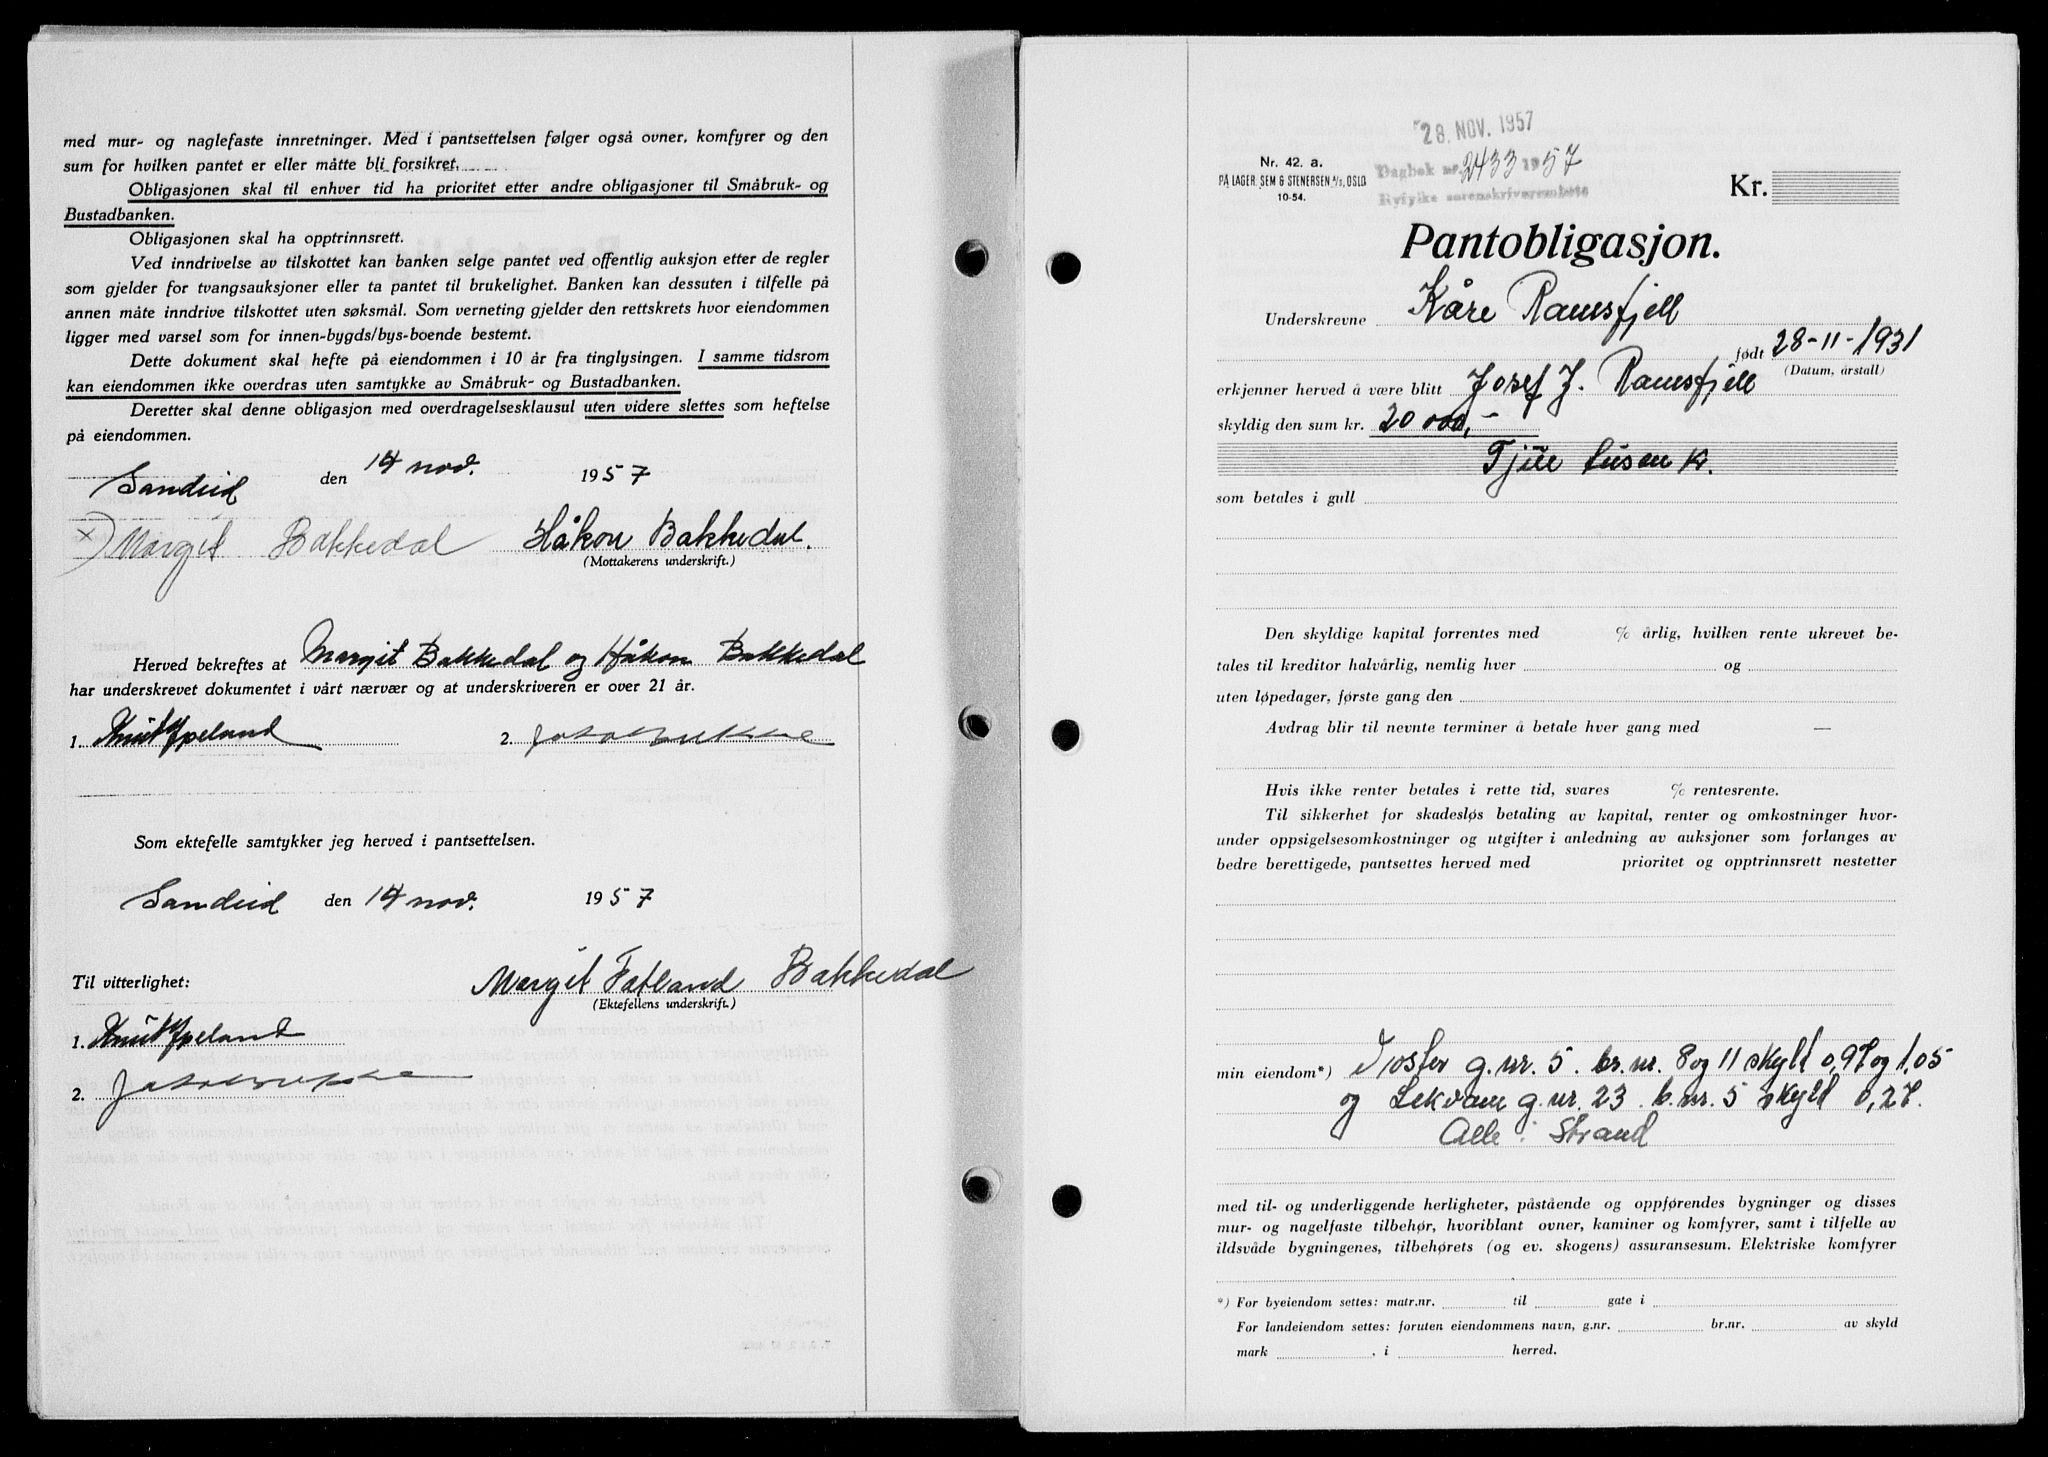 med mur- og naglefaste innretninger. Med i pantsettelsen følger også ovner, komfyrer og den
sum for hvilken pantet er eller måtte bli forsikret.
Obligasjonen skal til enhver tid ha prioritet etter andre obligasjoner til Småbruk- og
Bustadbanken.
Obligasjonen skal ha opptrinnsrett.
Ved inndrivelse av tilskottet kan banken selge pantet ved offentlig auksjon etter de regler
som gjelder for tvangsauksjoner eller ta pantet til brukelighet. Banken kan dessuten i tilfelle på
annen måte inndrive tilskottet uten søksmål. Som verneting gjelder den rettskrets hvor eiendommen
ligger med varsel som for innen-bygds/bys-boende bestemt.
Dette dokument skal hefte på eiendommen i 10 år fra tinglysingen. I samme tidsrom
kan eiendommen ikke overdras uten samtykke av Småbruk- og Bustadbanken.
Deretter skal denne obligasjon med overdragelsesklausul uten videre slettes som heftelse
på eiendommen.
Sandeid den 14 nov. 1957
x) Margit Bakkedal Håkon Bakkedal.
(Mottakerens underskrift.)
Herved bekreftes at Margit Bakkedal og Håkon Bakkedal
har underskrevet dokumentet i vårt nærvær og at underskriveren er over 21 år.
1. Knut Ypeland 2.
Som ektefelle samtykker jeg herved i pantsettelsen.
Sandeid den 14 nov. 1957
Til vitterlighet:
Margit Fatland Bakkedal
(Ektefellens underskrift.)
1. Knut Ypeland
2.
28. NOV. 1957
Dagbok nr. 2433 1957
Ryfylke sorenskriverembete
Nr. 42. a.
PÅ LAGER: SEM & STENERSEN A/S, OSLO
10-54.
Kr.
Pantobligasjon.
Underskrevne Kåre Ramsfjell
født 28-11-1931
(Datum, årstall)
erkjenner herved å være blitt Josef J. Ramsfjell
skyldig den sum kr. 20 000,-
Tjue tusen kr.
som betales i gull
Den skyldige kapital forrentes med % årlig, hvilken rente ukrevet be-
tales til kreditor halvårlig, nemlig hver og
uten løpedager, første gang den
Avdrag blir til nevnte terminer å betale hver gang med —
Hvis ikke renter betales i rette tid, svares % rentesrente.
Til sikkerhet for skadesløs betaling av kapital, renter og omkostninger hvor-
under oppsigelsesomkostninger og utgifter i anledning av auksjoner som forlanges av
bedre berettigede, pantsettes herved med prioritet og opptrinnsrett nestetter
min eiendom*) g.nr. 5. br.nr. 8 og 11 skyld 0,97 og 1,05
og Lekvam g.nr. 23. b.nr. 5 skyld 0,27.
Alle i Strand
med til- og underliggende herligheter, påstående og oppførendes bygninger og disses
mur- og nagelfaste tilbehør, hvoriblant ovner, kaminer og komfyrer, samt i tilfelle av
ildsvåde bygningenes, tilbehørets (og ev. skogens) assuransesum. Elektriske komfyrer
*) For byeiendom settes: matr.nr. til gate i
For landeiendom settes: foruten eiendommens navn, g.nr. br.nr. av skyld
mark , i herred.